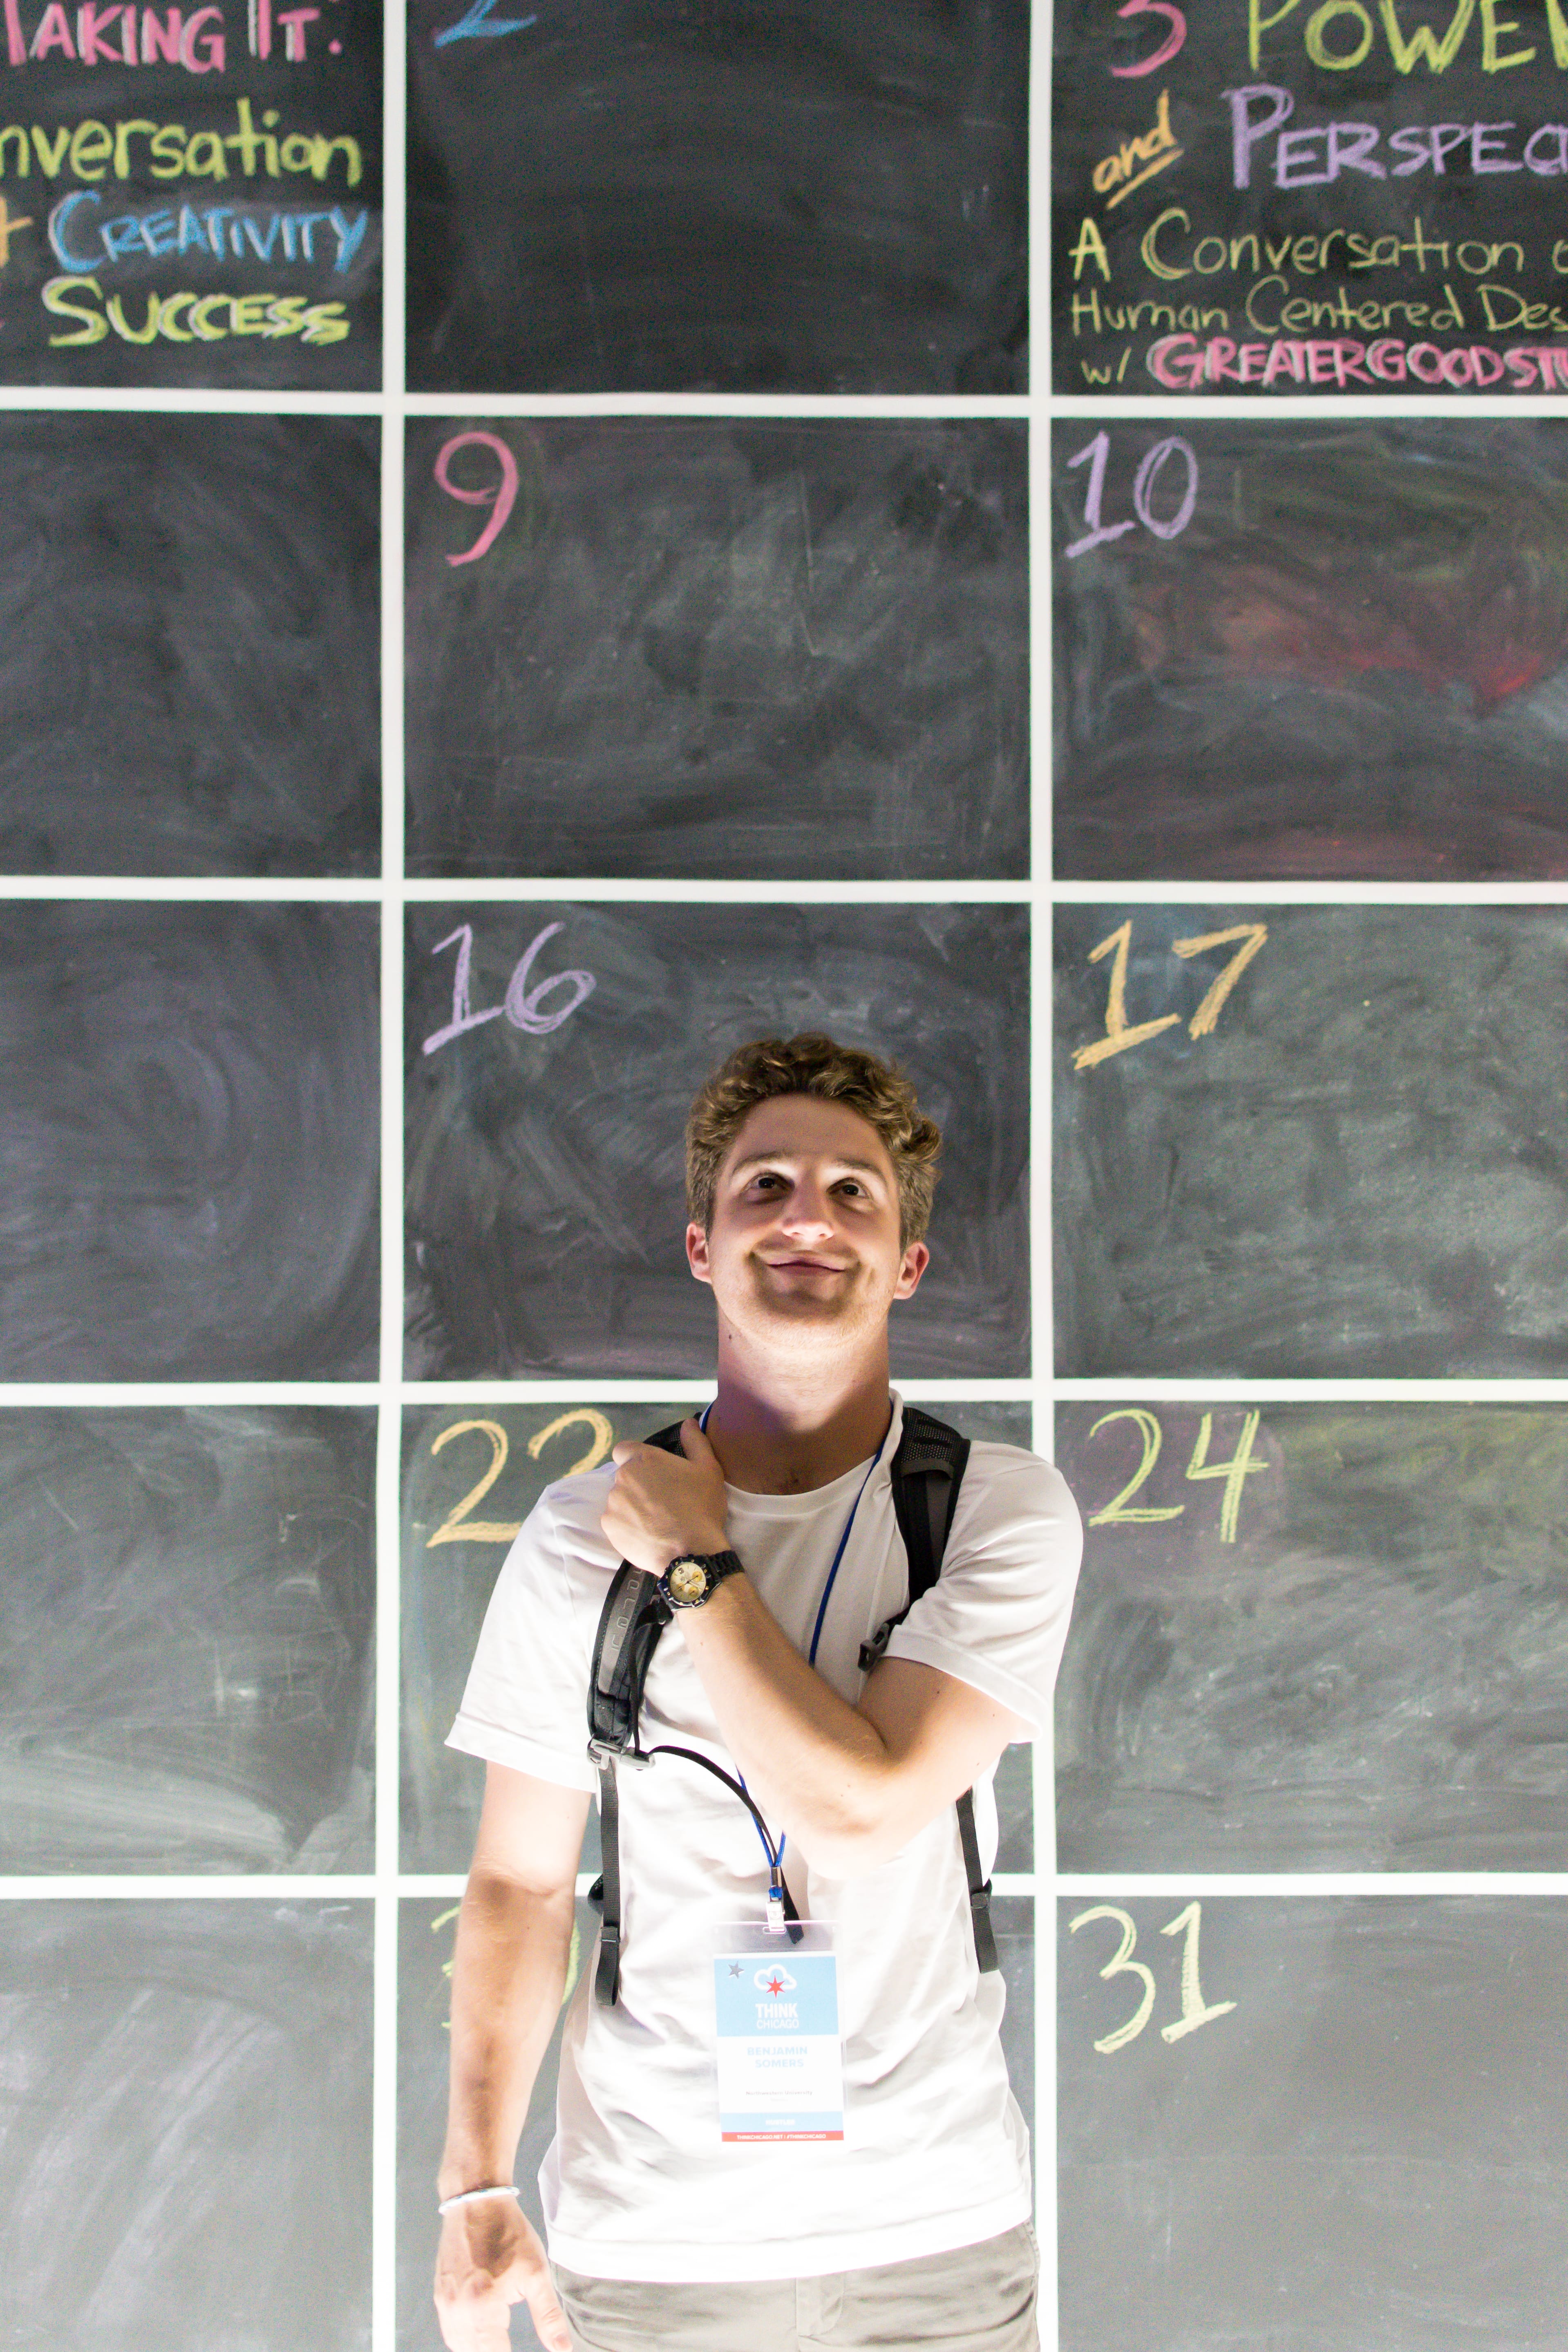 TAKING IT:
nversation
CREATIVITY
SUCCESS
2
3 POWER
and PERSPEC
A Conversation o
Human Centered Des
w/ GREATERGOODSTU
9
10
16
17
23
24
30
31
THINK
CHICAGO
BENJAMIN
SOMERS
Northwestern University
THINKCHICAGO.NET | #THINKCHICAGO